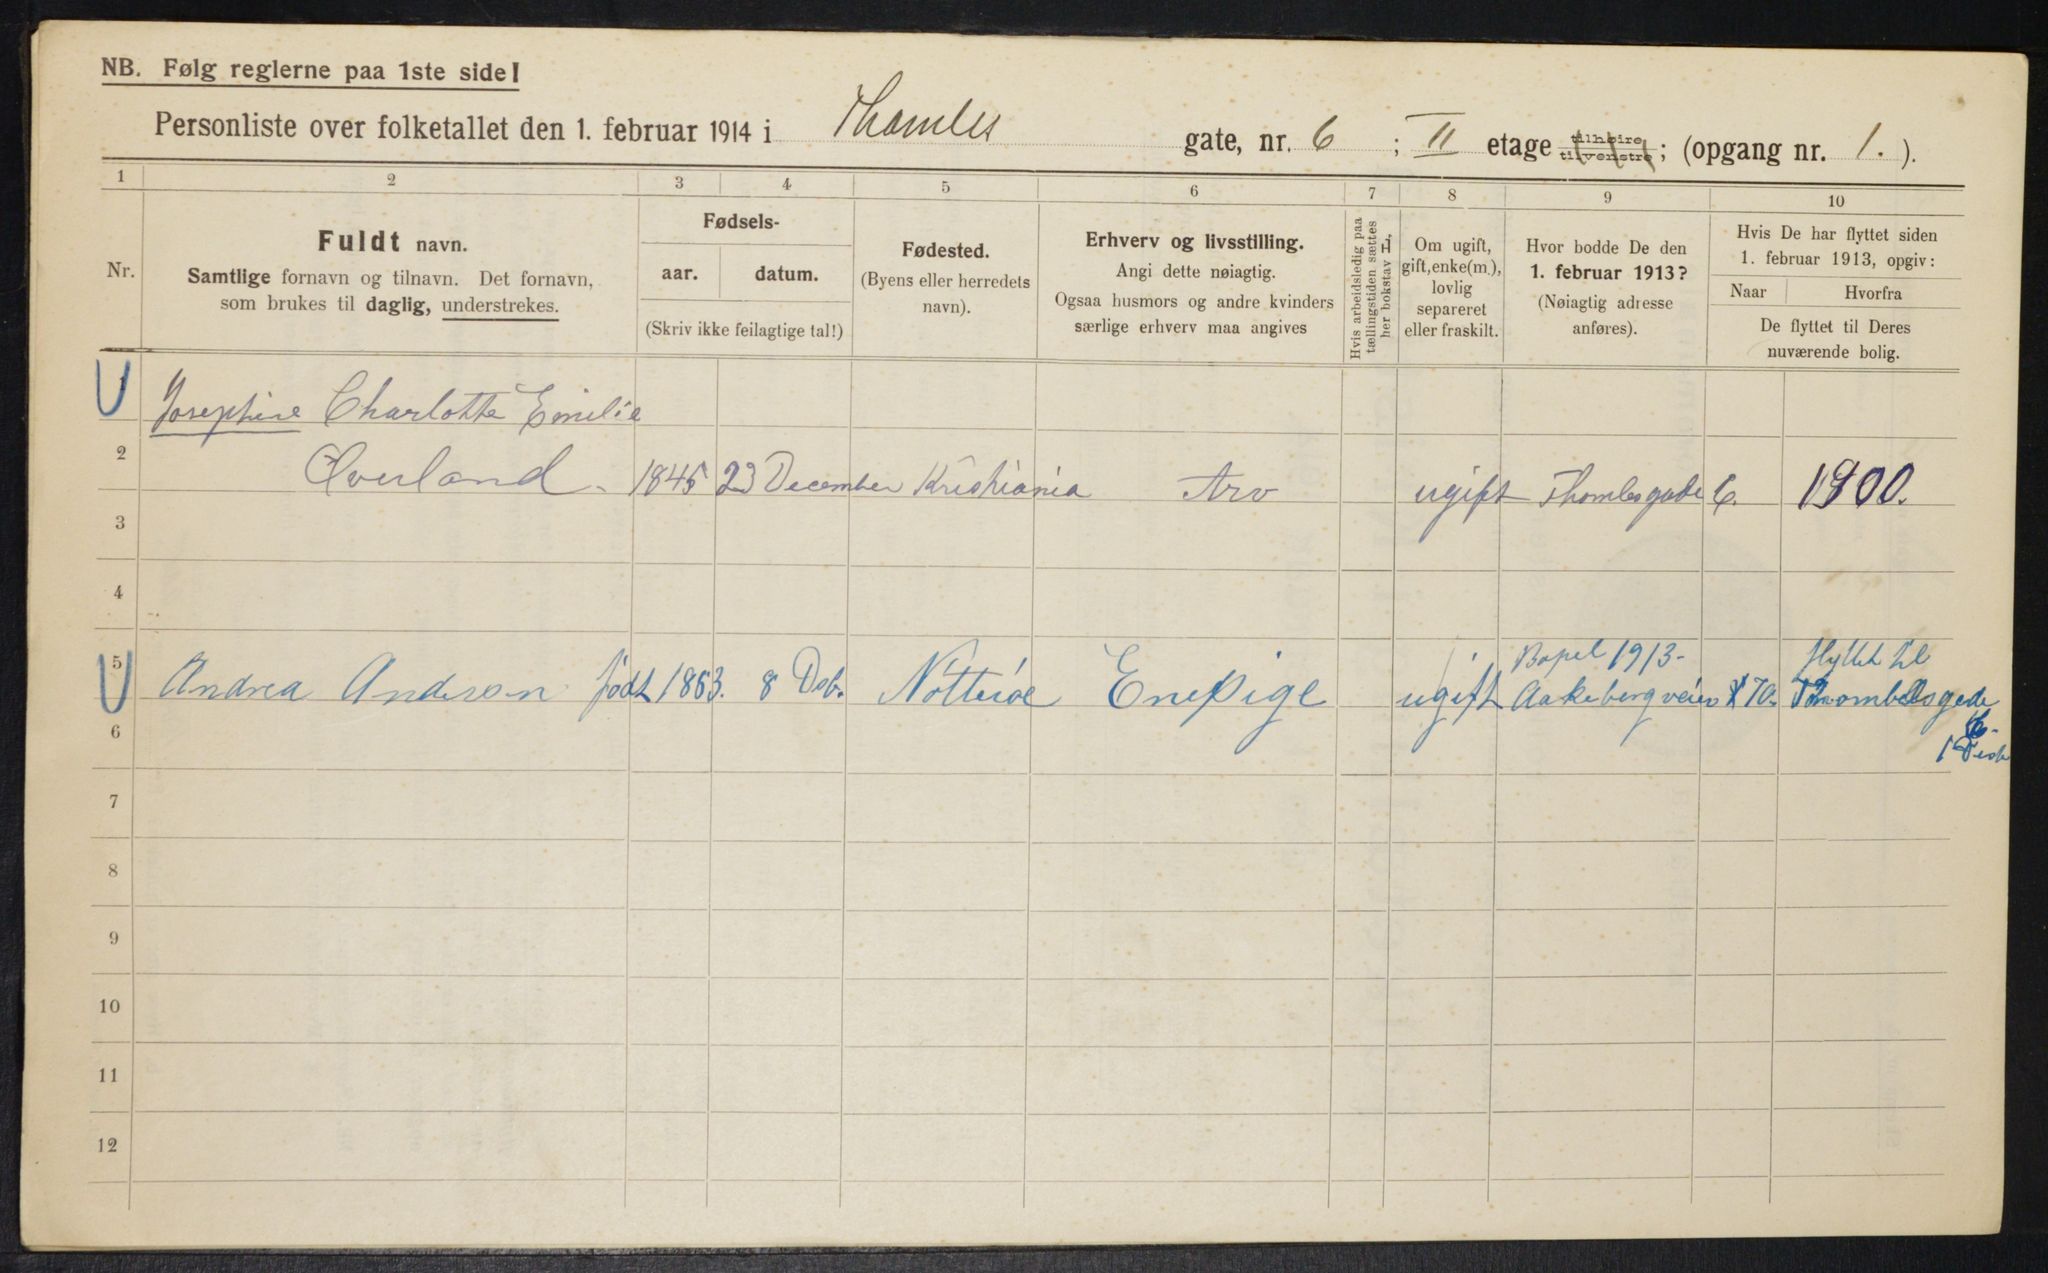 NB. Følg reglerne paa 1ste side!
Personliste over folketallet den 1. februar 1914 i Thombes gate, nr. 6 ; II etage tilhøire tilvenstre; (opgang nr. 1. ).
1 2 3 4 5 6 7 8 9 10
Nr.
Fuldt navn.
Samtlige fornavn og tilnavn. Det fornavn,
som brukes til daglig, understrekes.
Fødsels-
aar. datum.
(Skriv ikke feilagtige tal!)
Fødested.
(Byens eller herredets
navn).
Erhverv og livsstilling.
Angi dette nøiagtig.
Ogsaa husmors og andre kvinders
særlige erhverv maa angives
Hvis arbeidsledig paa
tællingstiden sættes
her bokstav L.
Om ugift,
gift, enke(m.),
lovlig
separeret
eller fraskilt.
Hvor bodde De den
1. februar 1913?
(Nøiagtig adresse
anføres).
Hvis De har flyttet siden
1. februar 1913, opgiv:
Naar Hvorfra
De flyttet til Deres
nuværende bolig.
1 Josephine Charlotte Emilie
2 Øverland. 1845 23 December Kristiania Arv ugift Thombesgade 6. 1900.
3
4
5 Andrea Andersen født 1863. 8 Dsb. Nøtterøe Enepige ugift 1913- Aakebergveien 70. flyttet til
gade
6
7
8
9
10
11
12